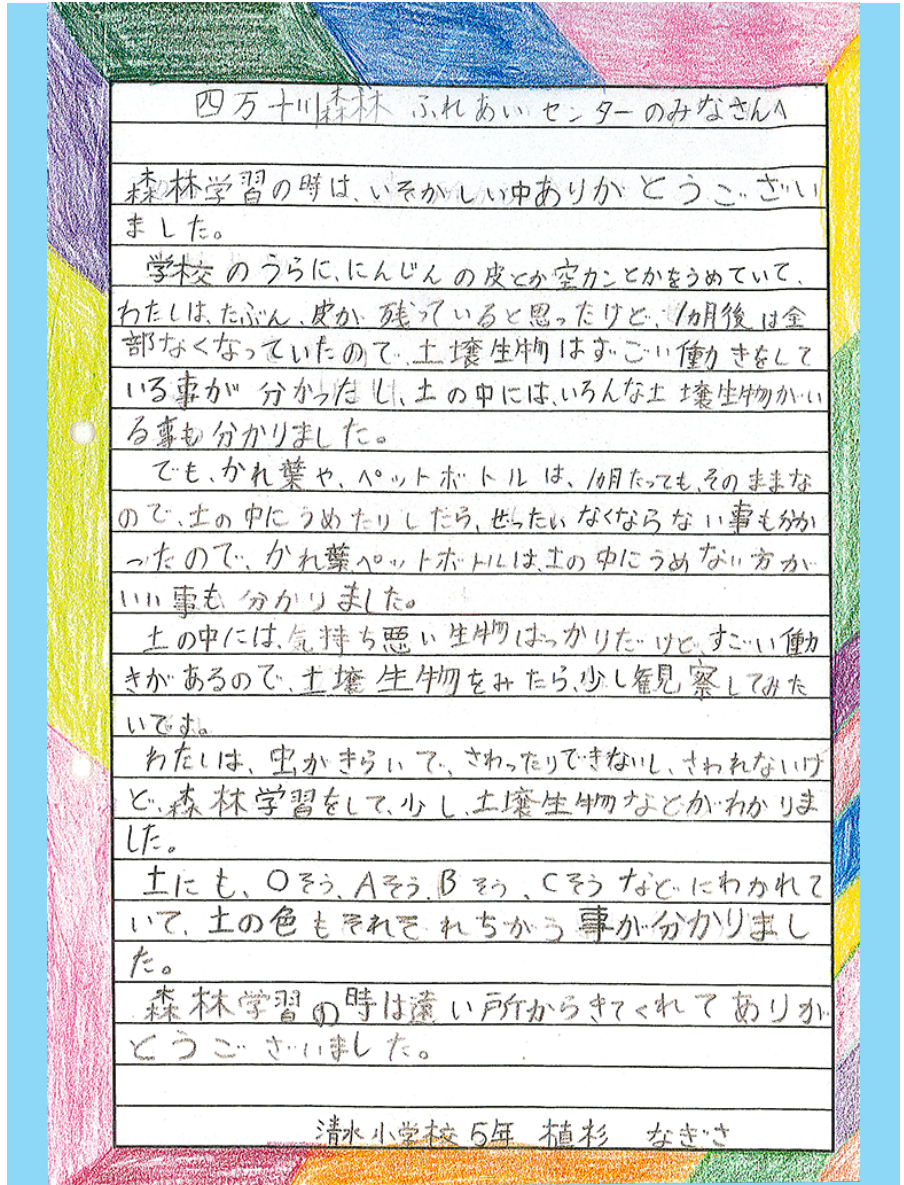 四万十川森林 ふれあいセンターのみなさんへ
森林学習の時は、いそがしい中ありがとうござい
ました。
学校のうらに、にんじんの皮とか空カンとかをうめていて、
わたしは、たぶん、皮が残っていると思ったけど、1カ月後は全
部なくなっていたので、土壌生物はすごい働きをして
いる事が分かったし、土の中には、いろんな土壌生物がい
る事も分かりました。
でも、かれ葉や、ペットボトルは、1カ月たっても、そのままな
ので、土の中にうめたりしたら、ぜったいなくならない事も分か
ったので、かれ葉ペットボトルは、土の中にうめない方が
いい事も分かりました。
土の中には、気持ち悪い生物ばっかりだけど、すごい働
きがあるので、土壌生物をみたら、少し観察してみた
いです。
わたしは、虫がきらいで、さわったりできないし、さわれないけ
ど、森林学習をして、少し、土壌生物などがわかりま
した。
土にも、Oそう、Aそう、Bそう、Cそうなどにわかれて
いて、土の色もそれぞれちがう事が分かりまし
た。
森林学習の時は遠い所からきてくれてありが
とうございました。
清水小学校5年 植杉 なぎさ